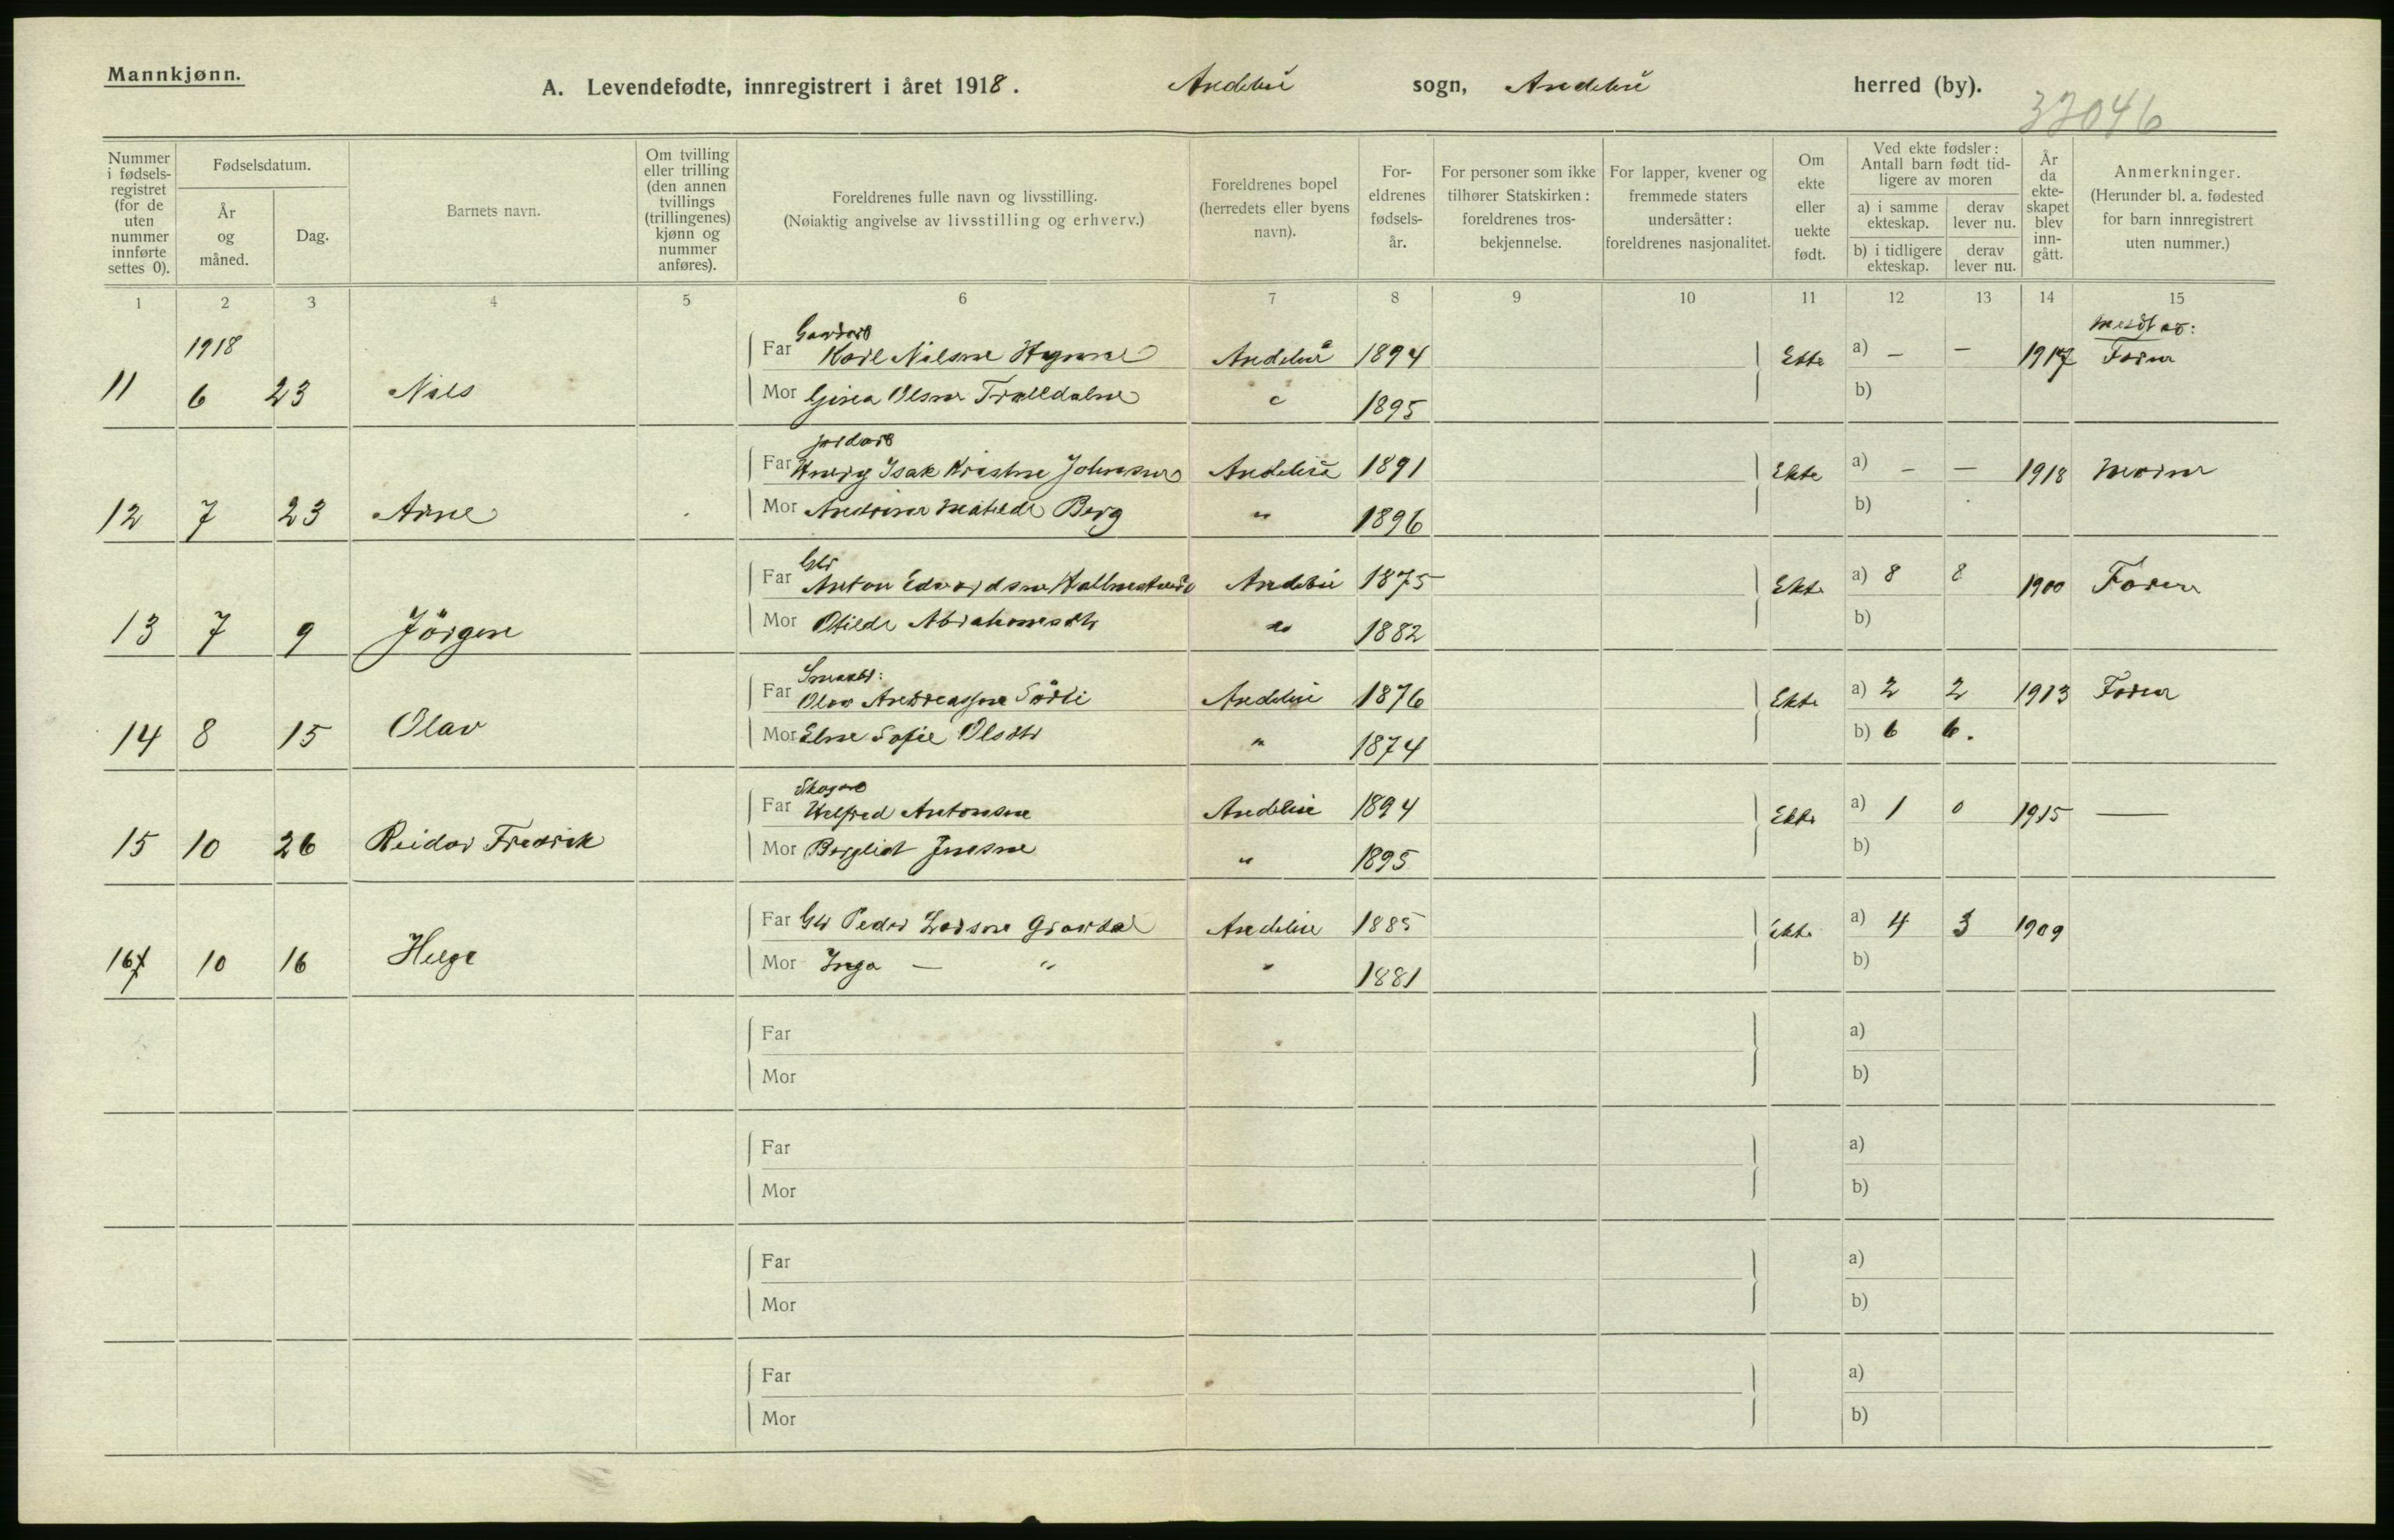 Mannkjønn.
A. Levendefødte, innregistrert i året 1918. Andebu sogn, Andebu herred (by).
37046
Nummer i fødsels-registret (for de uten nummer innførte settes 0).
Fødselsdatum.
År og måned.
Dag.
Barnets navn.
Om tvilling eller trilling (den annen tvillings (trillingenes) kjønn og nummer anføres).
Foreldrenes fulle navn og livsstilling.
(Nøiaktig angivelse av livsstilling og erhverv.)
Foreldrenes bopel (herredets eller byens navn).
For-eldrenes fødsels-år.
For personer som ikke tilhører Statskirken: foreldrenes tros-bekjennelse.
For lapper, kvener og fremmede staters undersåtter: foreldrenes nasjonalitet.
Om ekte eller uekte født.
Ved ekte fødsler: Antall barn født tid-ligere av moren
a) i samme ekteskap.
derav lever nu.
b) i tidligere ekteskap.
derav lever nu.
År da ekte-skapet blev inn-gått.
Anmerkninger.
(Herunder bl. a. fødested for barn innregistrert uten nummer.)
1 2 3 4 5 6 7 8 9 10 11 12 13 14 15
1918
Far Karl Nilsen Andebu 1894 Ekte a) — — 1917 Meldt av: Faren
11 6 23 Nils
Mor Gina Olsen Trolldalen 1895 b)
Far Isak Kristian Johansen Andebu 1891 Ekte a) — — 1918 Moren
12 7 23 Arne
Mor Andrine Matilde Berg " 1896 b)
Far Gbr Anton Edvardsen Andebu 1875 Ekte a) 8 8 1900 Faren
13 7 9 Jörgen
Mor Otilde Abrahamsdtr " 1882 b)
Far Småbr: Olav Andreassen Sörli Andebu 1876 Ekte a) 2 2 1913 Faren
14 8 15 Olav
Mor Else Sofie Olsdtr " 1874 b) 6 6.
Far Helfred Antonsen Andebu 1894 Ekte a) 1 0 1915 —
15 10 26 Reidar Fredrik
Mor Bergliot Jensen " 1895 b)
Far Gbr Peder Larsen Gravdal Andebu 1885 Ekte a) 4 3 1909
16 10 16 Helge
Mor Inga — " " 1881 b)
Far a)
Mor b)
Far a)
Mor b)
Far a)
Mor b)
Far a)
Mor b)